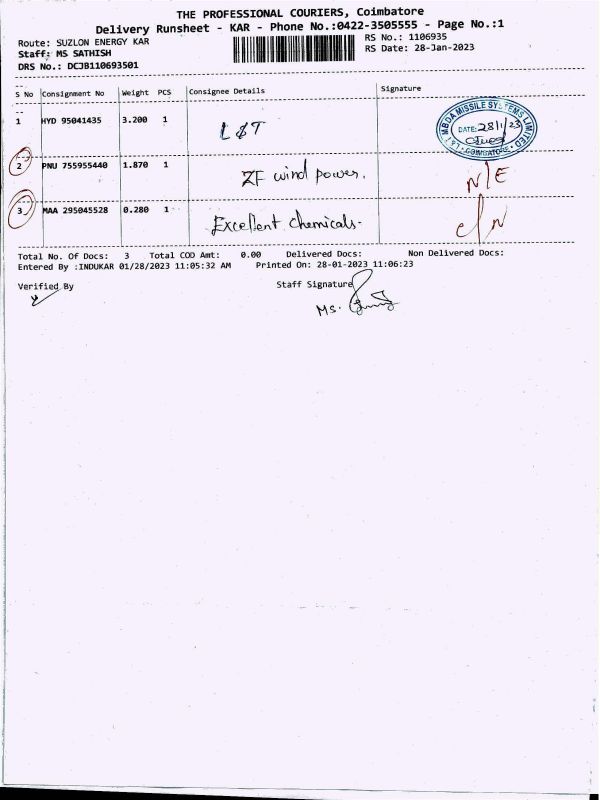 THE PROFESSIONAL COURIERS, Coimbatore
Delivery Runsheet - KAR - Phone No.:0422-3505555 - Page No.:1
Route: SUZLON ENERGY KAR
Staff: MS SATHISH
DRS No.: DCJB110693501
RS No.: 1106935
RS Date: 28-Jan-2023
S No Consignment No Weight PCS Consignee Details Signature
1 HYD 95041435 3.200 1 L&T
L&T MBDA MISSILE SYSTEMS LIMITED
DATE: 28/1/23
COIMBATORE
2 PNU 755955440 1.870 1 ZF wind power. N/E
3 MAA 295045528 0.280 1 Excellent Chemicals- c/N
Total No. Of Docs: 3 Total COD Amt: 0.00 Delivered Docs: Non Delivered Docs:
Entered By :INDUKAR 01/28/2023 11:05:32 AM Printed On: 28-01-2023 11:06:23
Verified By Staff Signature
MS.